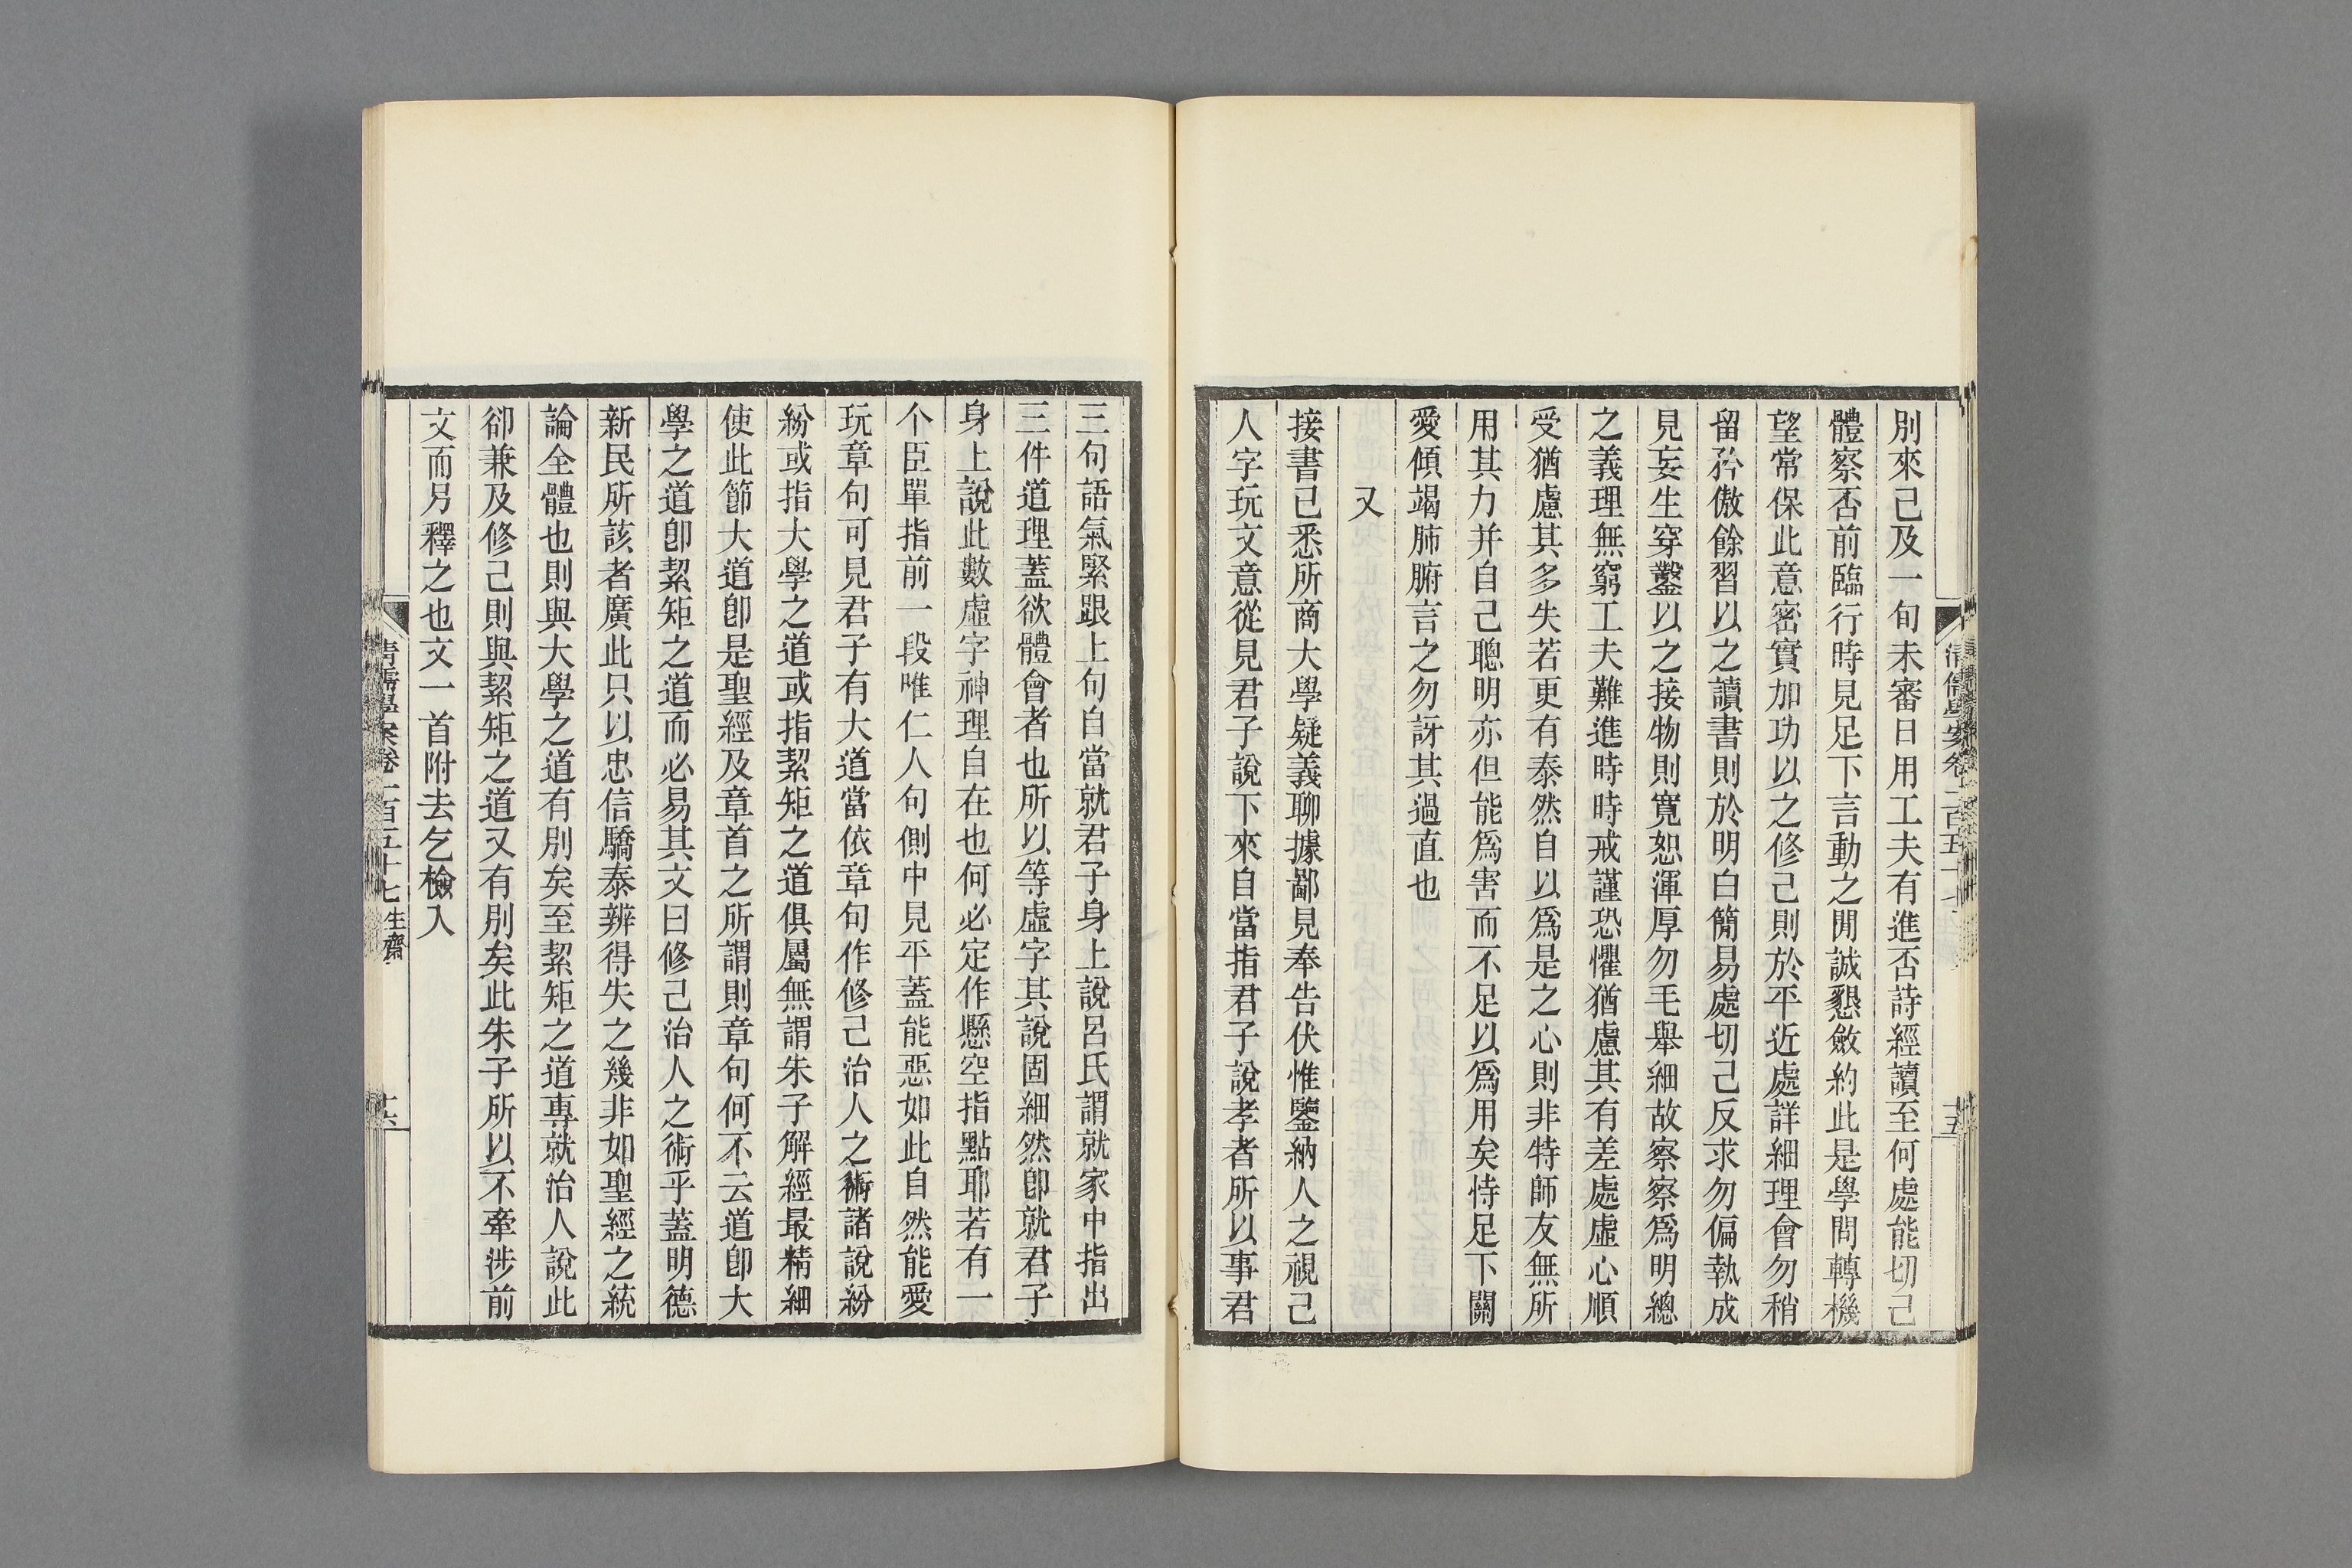 別來已及一旬未審日用工夫有進否詩經讀至何處能切己
體察否前臨行時見足下言動之閒誠懇斂約此是學問轉機
望常保此意密實加功以之修己則於平近處詳細理會勿稍
留矜傲餘習以之讀書則於明白簡易處切己反求勿偏執成
見妄生穿鑿以之接物則寬恕渾厚勿毛舉細故察察爲明總
之義理無窮工夫難進時時戒謹恐懼猶慮其有差處虛心順
受猶慮其多失若更有泰然自以爲是之心則非特師友無所
用其力并自己聰明亦但能爲害而不足以爲用矣恃足下關
愛傾竭肺腑言之勿訝其過直也
又
接書已悉所商大學疑義聊據鄙見奉告伏惟鑒納人之視己
人字玩文意從見君子說下來自當指君子說孝者所以事君
清儒學案卷一百五十七
十五
三句語氣緊跟上句自當就君子身上說呂氏謂就家中指出
三件道理蓋欲體會者也所以等虛字其說固細然卽就君子
身上說此數虛字神理自在也何必定作懸空指點耶若有一
个臣單指前一段唯仁人句側中見平蓋能惡如此自然能愛
玩章句可見君子有大道當依章句作修己治人之術諸說紛
紛或指大學之道或指絜矩之道俱屬無謂朱子解經最精細
使此節大道卽是聖經及章首之所謂則章句何不云道卽大
學之道卽絜矩之道而必易其文曰修己治人之術乎蓋明德
新民所該者廣此只以忠信驕泰辨得失之幾非如聖經之統
論全體也則與大學之道有別矣至絜矩之道專就治人說此
卻兼及修己則與絜矩之道又有別矣此朱子所以不牽涉前
文而另釋之也文一首附去乞檢入
清儒學案卷一百五十七 生齋
十六